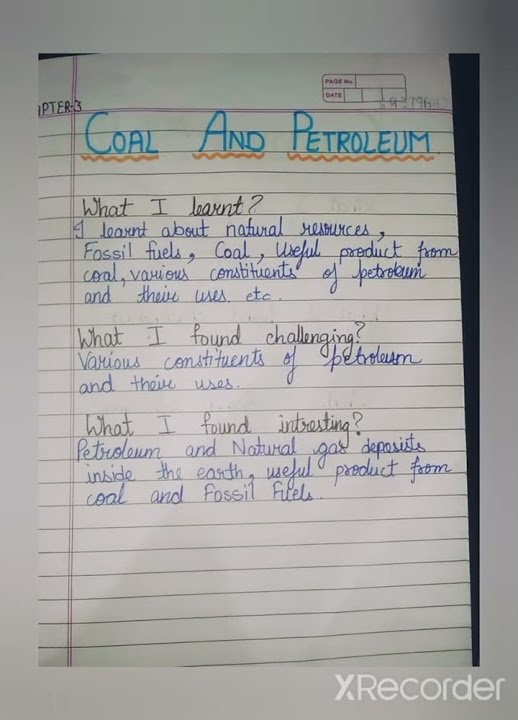 PAGE No.
DATE
PTER-3
COAL AND PETROLEUM
What I learnt?
I learnt about natural resources,
Fossil fuels, Coal, Useful product from
coal, various constituents of petroleum
and their uses etc.
What I found challenging?
Various constituents of petroleum
and their uses.
What I found intresting?
Petroleum and Natural gas deposists
inside the earth, useful product from
coal and Fossil Fuels.
XRecorder